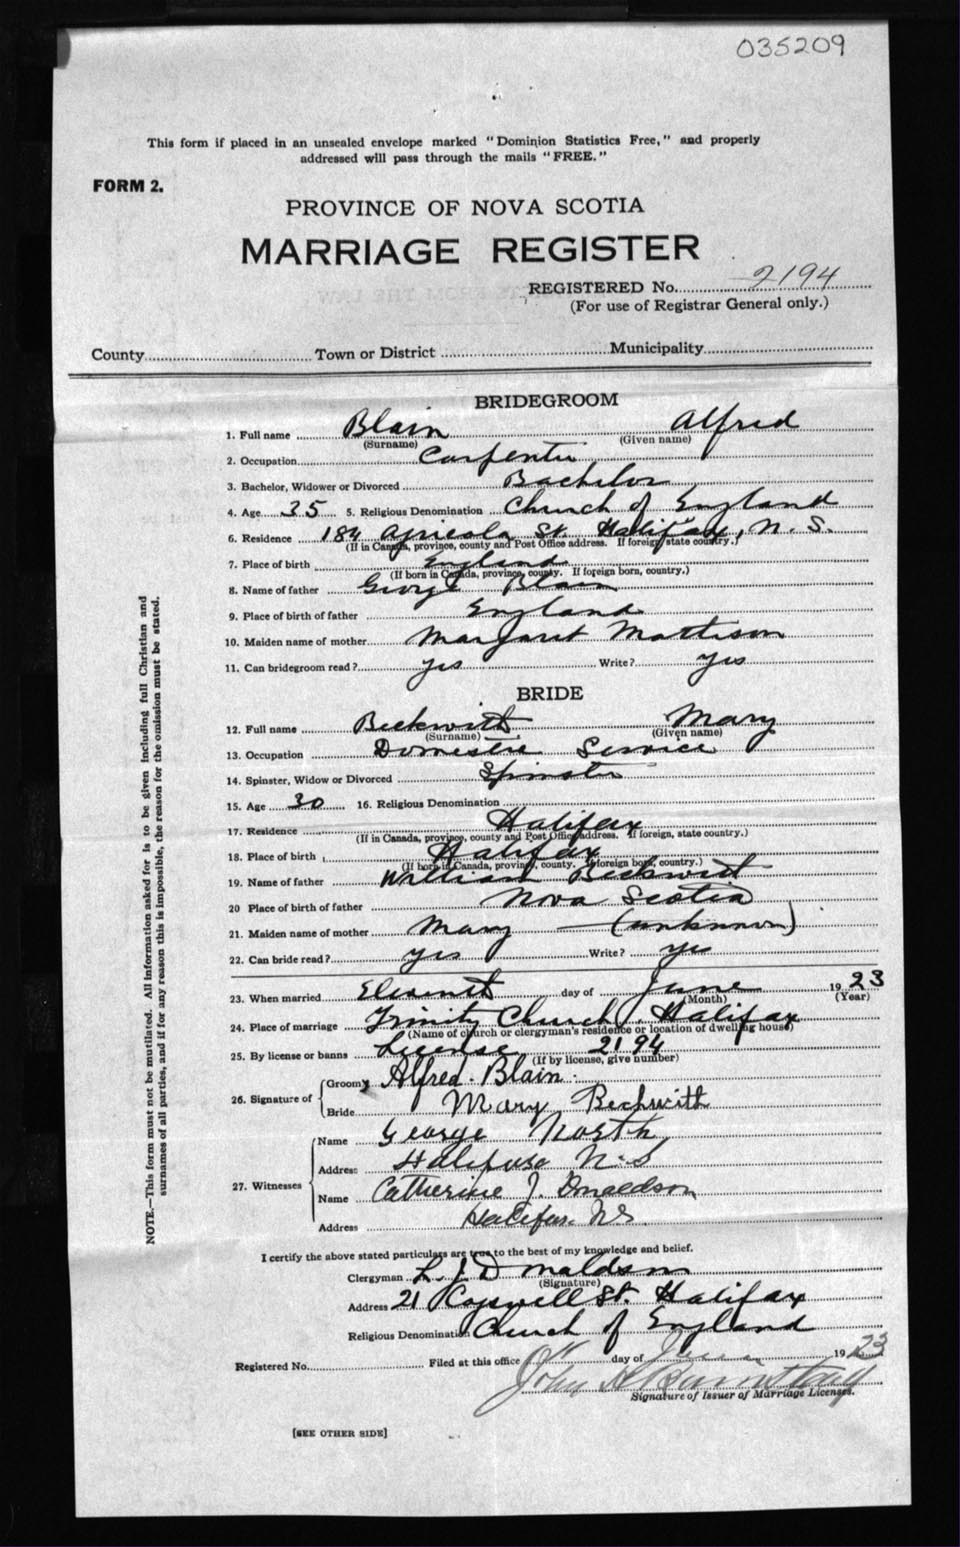 035209
This form if placed in an unsealed envelope marked "Dominion Statistics Free," and properly
addressed will pass through the mails "FREE."
FORM 2.
PROVINCE OF NOVA SCOTIA
MARRIAGE REGISTER
REGISTERED No. 2194
(For use of Registrar General only.)
County Town or District Municipality
BRIDEGROOM
1. Full name Blain Alfred
(Surname) (Given name)
2. Occupation Carpenter
3. Bachelor, Widower or Divorced Bachelor
4. Age 35 5. Religious Denomination Church of England
6. Residence 184 Agricola St. Halifax, N. S.
(If in Canada, province, county and Post Office address. If foreign, state country.)
7. Place of birth England
(If born in Canada, province, county. If foreign born, country.)
8. Name of father George Blain
9. Place of birth of father England
10. Maiden name of mother Margaret Mattison
11. Can bridegroom read? yes Write? yes
BRIDE
12. Full name Beckwith Mary
(Surname) (Given name)
13. Occupation Domestic Service
14. Spinster, Widow or Divorced Spinster
15. Age 30 16. Religious Denomination
17. Residence Halifax
(If in Canada, province, county and Post Office address. If foreign, state country.)
18. Place of birth Halifax
(If born in Canada, province, county. If foreign born, country.)
19. Name of father William Beckwith
20 Place of birth of father Nova Scotia
21. Maiden name of mother Mary — (unknown)
22. Can bride read? yes Write? yes
23. When married Eleventh day of June 1923
(Month) (Year)
24. Place of marriage Trinity Church, Halifax
(Name of church or clergyman's residence or location of dwelling house)
25. By license or banns License 2194
(If by license, give number)
26. Signature of Groom Alfred. Blain.
Bride Mary Beckwith
27. Witnesses Name George North
Address Halifax N.S
Name Catherine J. Donaldson
Address Halifax. NS
I certify the above stated particulars are true to the best of my knowledge and belief.
Clergyman L. J. Donaldson
(Signature)
Address 21 Cogswell St. Halifax
Religious Denomination Church of England
Registered No. Filed at this office day of June 1923
John
Signature of Issuer of Marriage Licenses.
[SEE OTHER SIDE]
NOTE.—This form must not be mutilated. All information asked for is to be given including full Christian and
surnames of all parties, and if for any reason this is impossible, the reason for the omission must be stated.